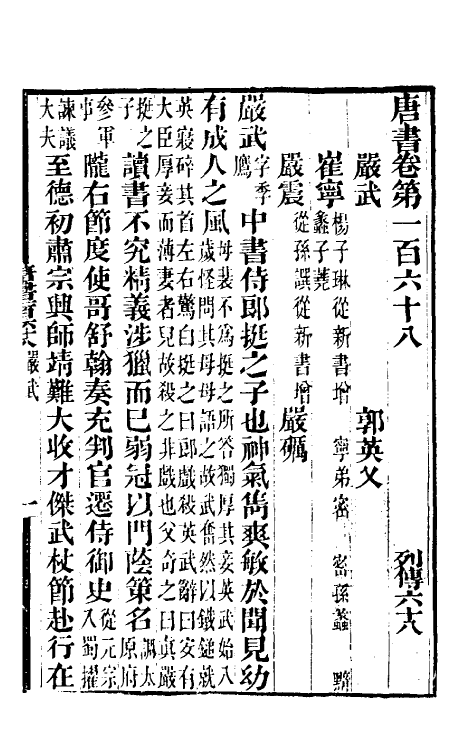 唐書卷第一百六十八　列傳六十八
嚴武　郭英乂
崔寧　楊子琳從新書增　寧弟密　密孫蠡　黯
蠡子蕘
嚴震　從孫譔從新書增　嚴礪
嚴武字季鷹中書侍郎挺之子也神氣雋爽敏於聞見幼
有成人之風母裴不為挺之所答獨厚其妾英武始八歲怪問其母母語之故武奮然以鐵鎚就
英寢碎其首左右驚白挺之曰郎戲殺英武辭曰安有大臣厚妾而薄妻者兒故殺之非戲也父奇之曰真嚴
挺之子讀書不究精義涉獵而已弱冠以門蔭策名調太原府
參軍事隴右節度使哥舒翰奏充判官遷侍御史從元宗入蜀擢
諫議大夫至德初肅宗興師靖難大收才傑武杖節赴行在
嚴武　一